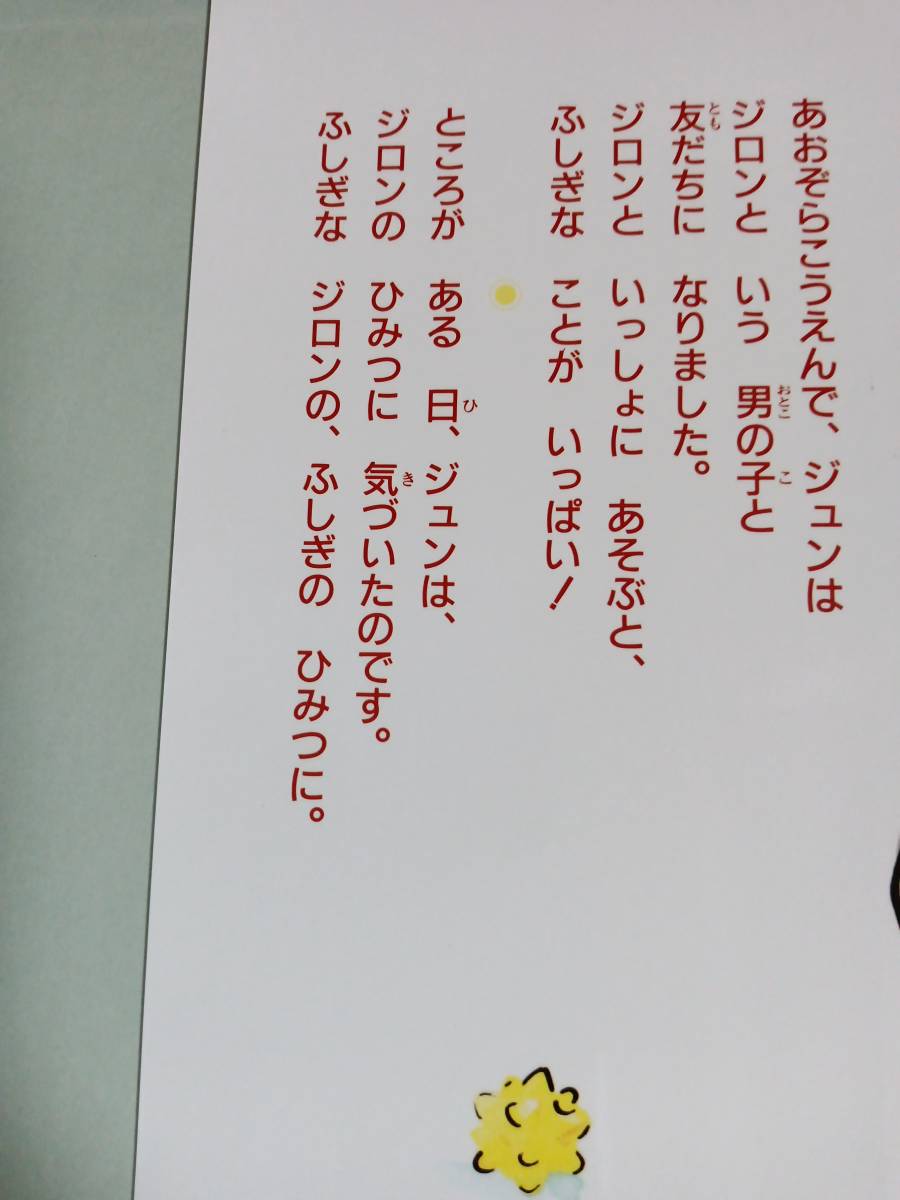 あおぞらこうえんで、ジュンは
ジロンと いう 男の子と
友だちに なりました。
ジロンと いっしょに あそぶと、
ふしぎな ことが いっぱい!
ところが ある 日、ジュンは、
ジロンの ひみつに 気づいたのです。
ふしぎな ジロンの、ふしぎの ひみつに。